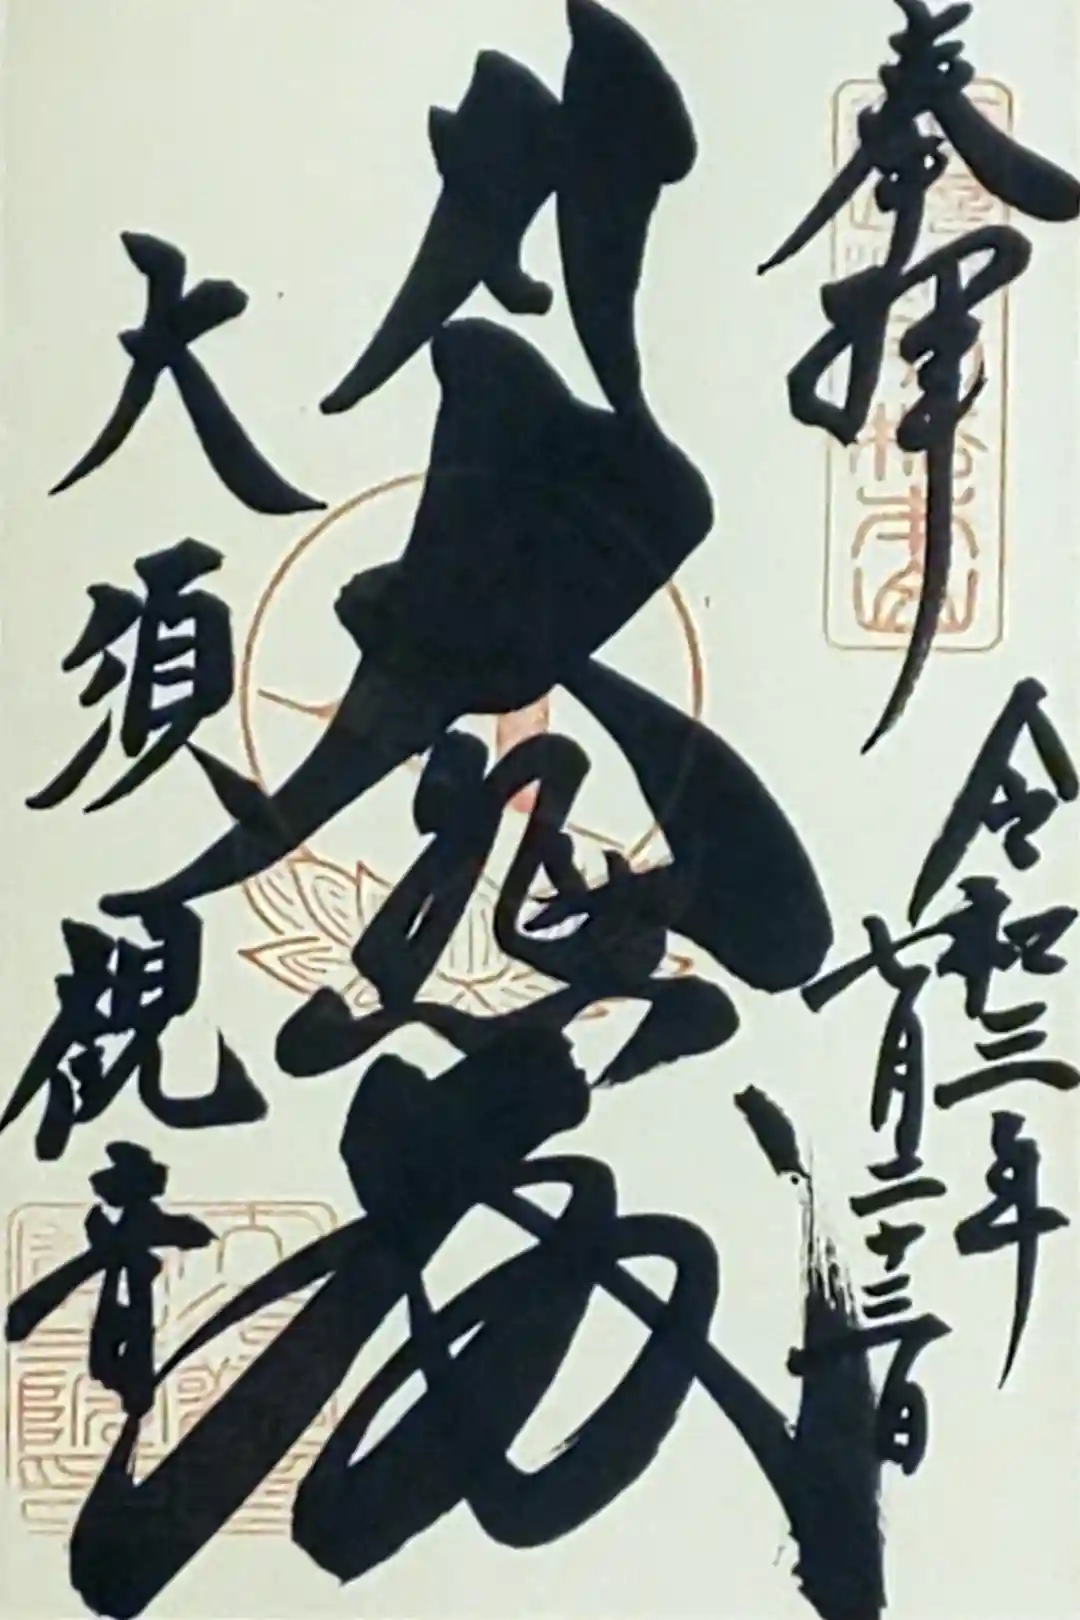 奉拝
令和三年
七月二十三日
大悲殿
大須観音